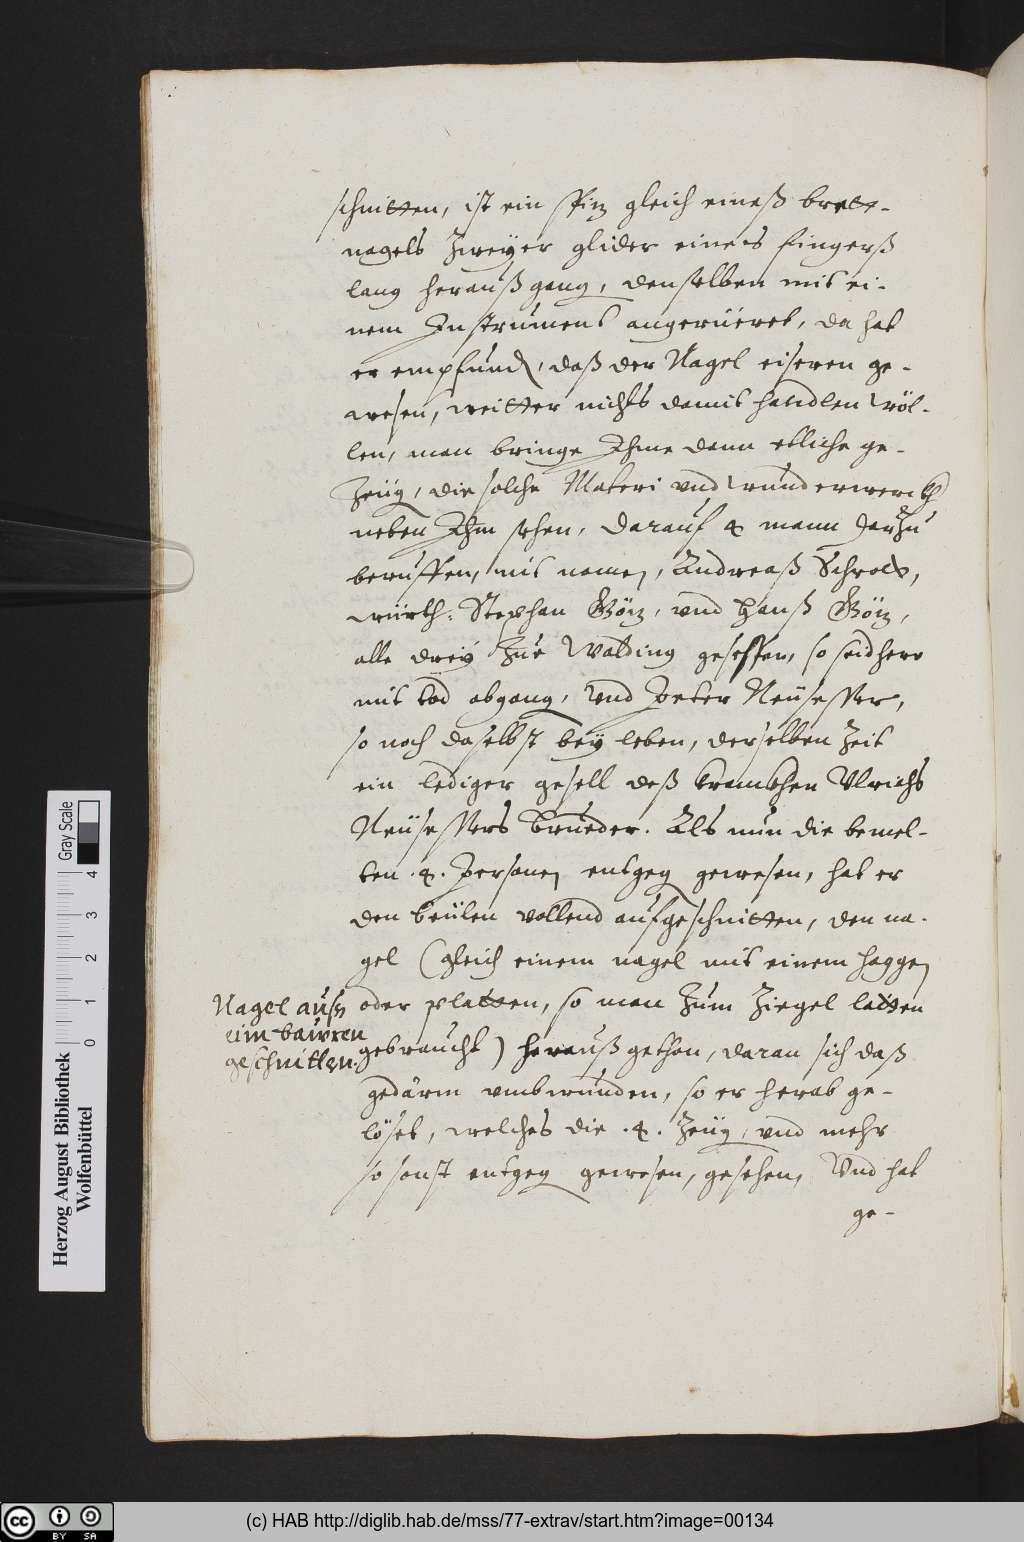 schnitten, ist ein spitz gleich eineß brett-
nagels Zweÿer glider eines fingerß
lang heraußgang, denselben mit ei-
nem Instrument angerüeret, da hat
er empfund, daß der Nagel eiseren ge-
wesen, weitter nichts damit handlen wöl-
len, man bringe Ihme dann etliche ge-
Zeüg, die solche Materi vnd wunderwerckh
neben Ihm sehen, darauf 4 mann darzu
beruffen, mit namen, Andreaß Schrolt,
würth: Stephan Götz, vnd Hanß Götz,
alle dreÿ Zue Walding gesessen, so seidhero
mit tod abgang, Vnd Peter Neüsesser,
so noch daselbst beÿ leben, derselben Zeit
ein lediger gesell deß krankhen Vlrichs
Neüsessers brueder. Als nun die bemel-
ten .4. Personen entgeg gewesen, hat er
den beülen vollend aufgeschnitten, den na-
gel (gleich einem nagel mit einem haggen
oder platten, so man Zum Ziegel latten
gebraucht) herauß gethon, daran sich daß
gedärm vmbwunden, so er herab ge-
löset, welches die .4. Zeüg, vnd mehr
so sonst entgeg gewesen, gesehen, Vnd hat
ge-
Nagel auß
eim bauren
geschnitten.
Gray Scale
0 1 2 3 4
Herzog August Bibliothek
Wolfenbüttel
(c) HAB http://diglib.hab.de/mss/77-extrav/start.htm?image=00134
cc BY SA